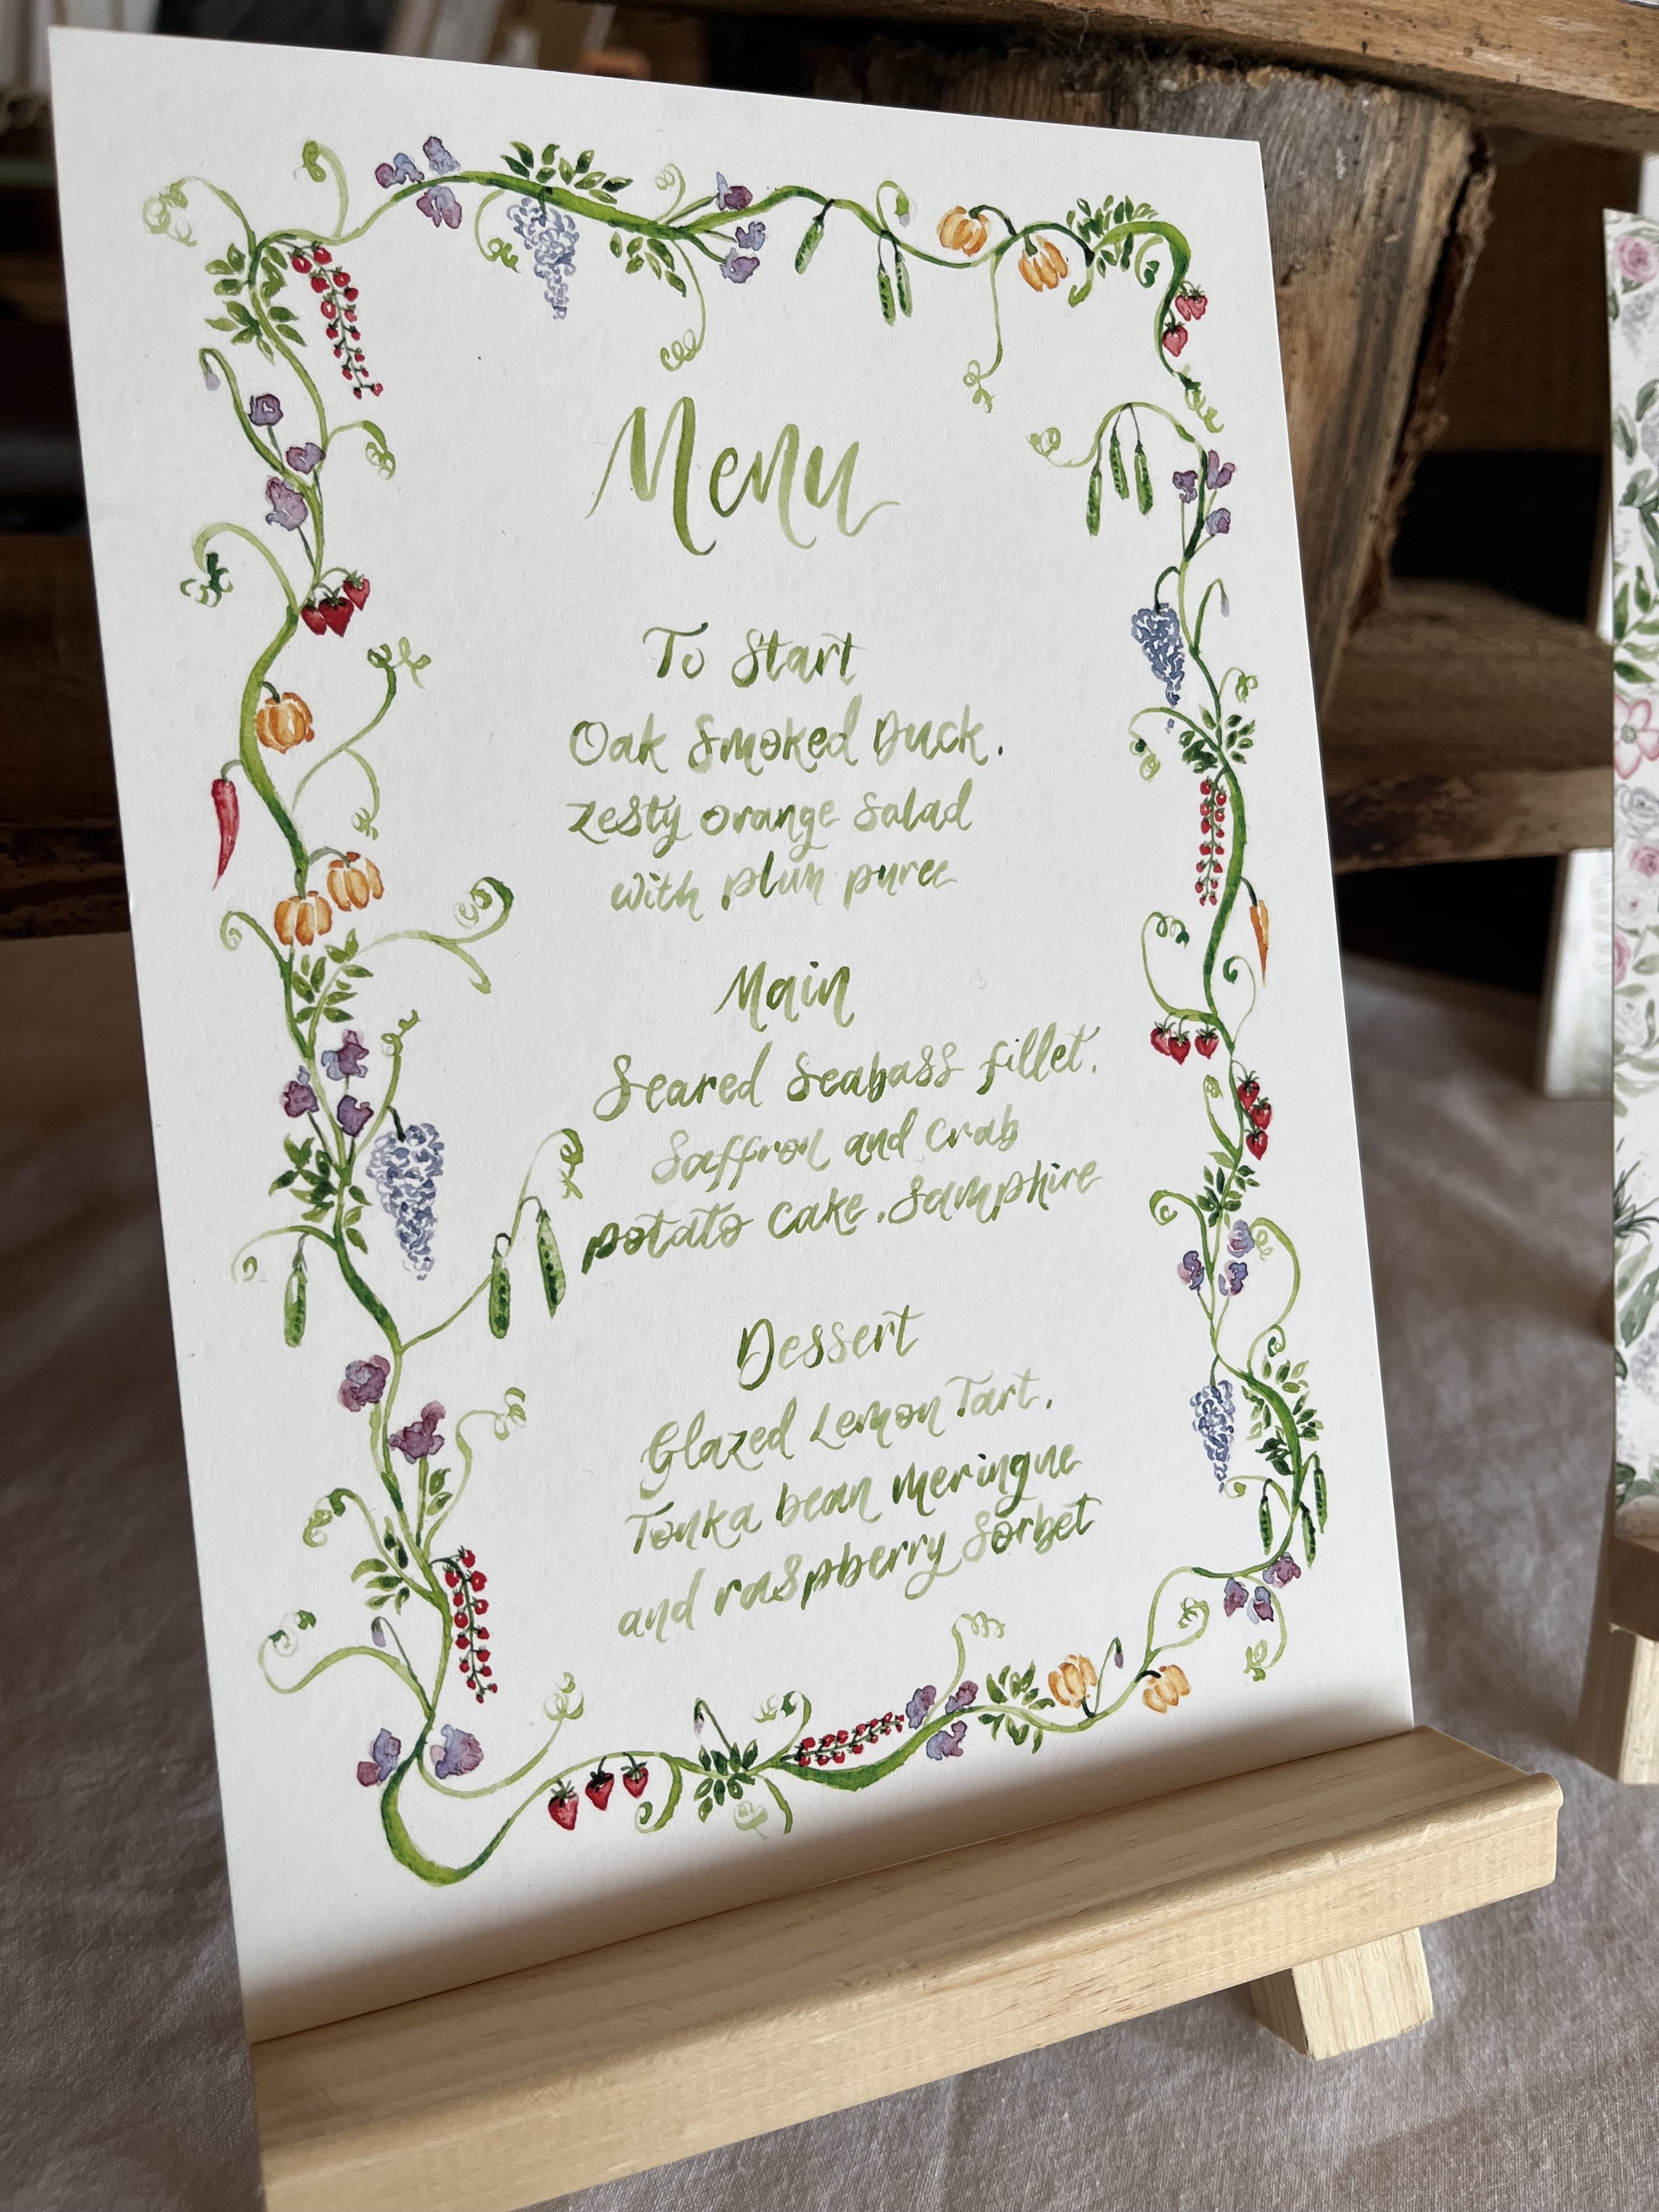 Menu
To Start
Oak Smoked Duck.
Zesty orange Salad
with plum puree
Main
Seared Seabass fillet.
Saffron and Crab
potato cake. Samphire
Dessert
Glazed Lemon Tart.
Tonka bean meringue
and raspberry Sorbet